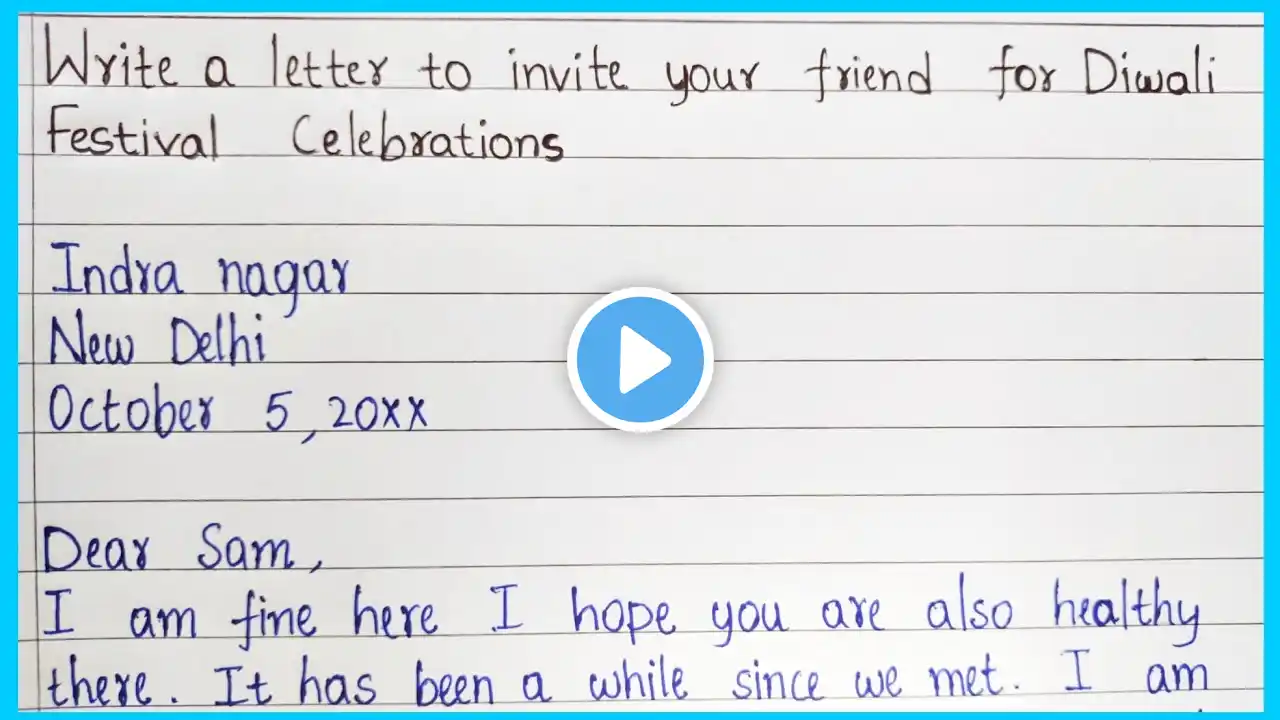 Write a letter to invite your friend for Diwali
Festival Celebrations
Indra nagar
New Delhi
October 5, 20xx
Dear Sam,
I am fine here I hope you are also healthy
there. It has been a while since we met. I am